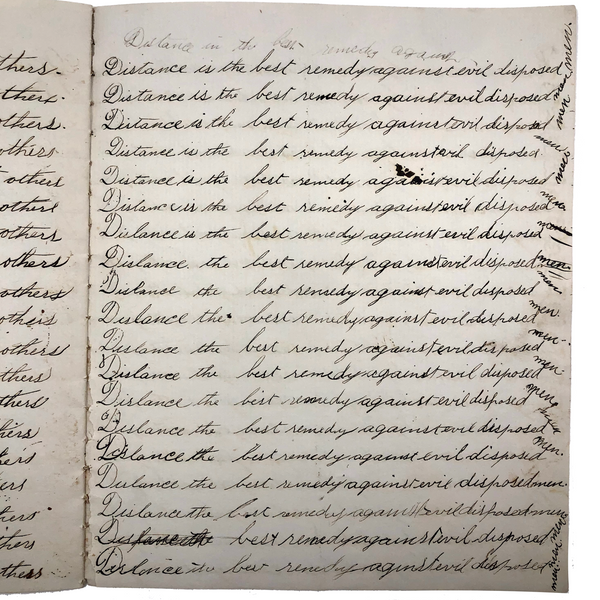 thers.
Distance in the best remedy against
Distance is the best remedy against evil disposed men.
others.
Distance is the best remedy against evil disposed men
others.
Distance is the best remedy against evil disposed men
others
Distance is the best remedy against evil disposed men
others
Distance is the best remedy against evil disposed men
others
Distance is the best remedy against evil disposed men
others
Distance is the best remedy against evil disposed men
others
Distance the best remedy against evil disposed men
others
Distance the best remedy against evil disposed men
others
Distance the best remedy against evil disposed men.
others
Distance the best remedy against evil disposed men.
thers
Distance the best remedy against evil disposed men
thers
Distance the best remedy against evil disposed men
hers
Distance the best remedy against evil disposed men.
hers
Distance the best remedy against evil disposed
ers
Distance the best remedy against evil disposed men.
hers
Distance the best remedy against evil disposed men
hers
best remedy against evil disposed men
thers
Distance is bes remedy against evil disposed men